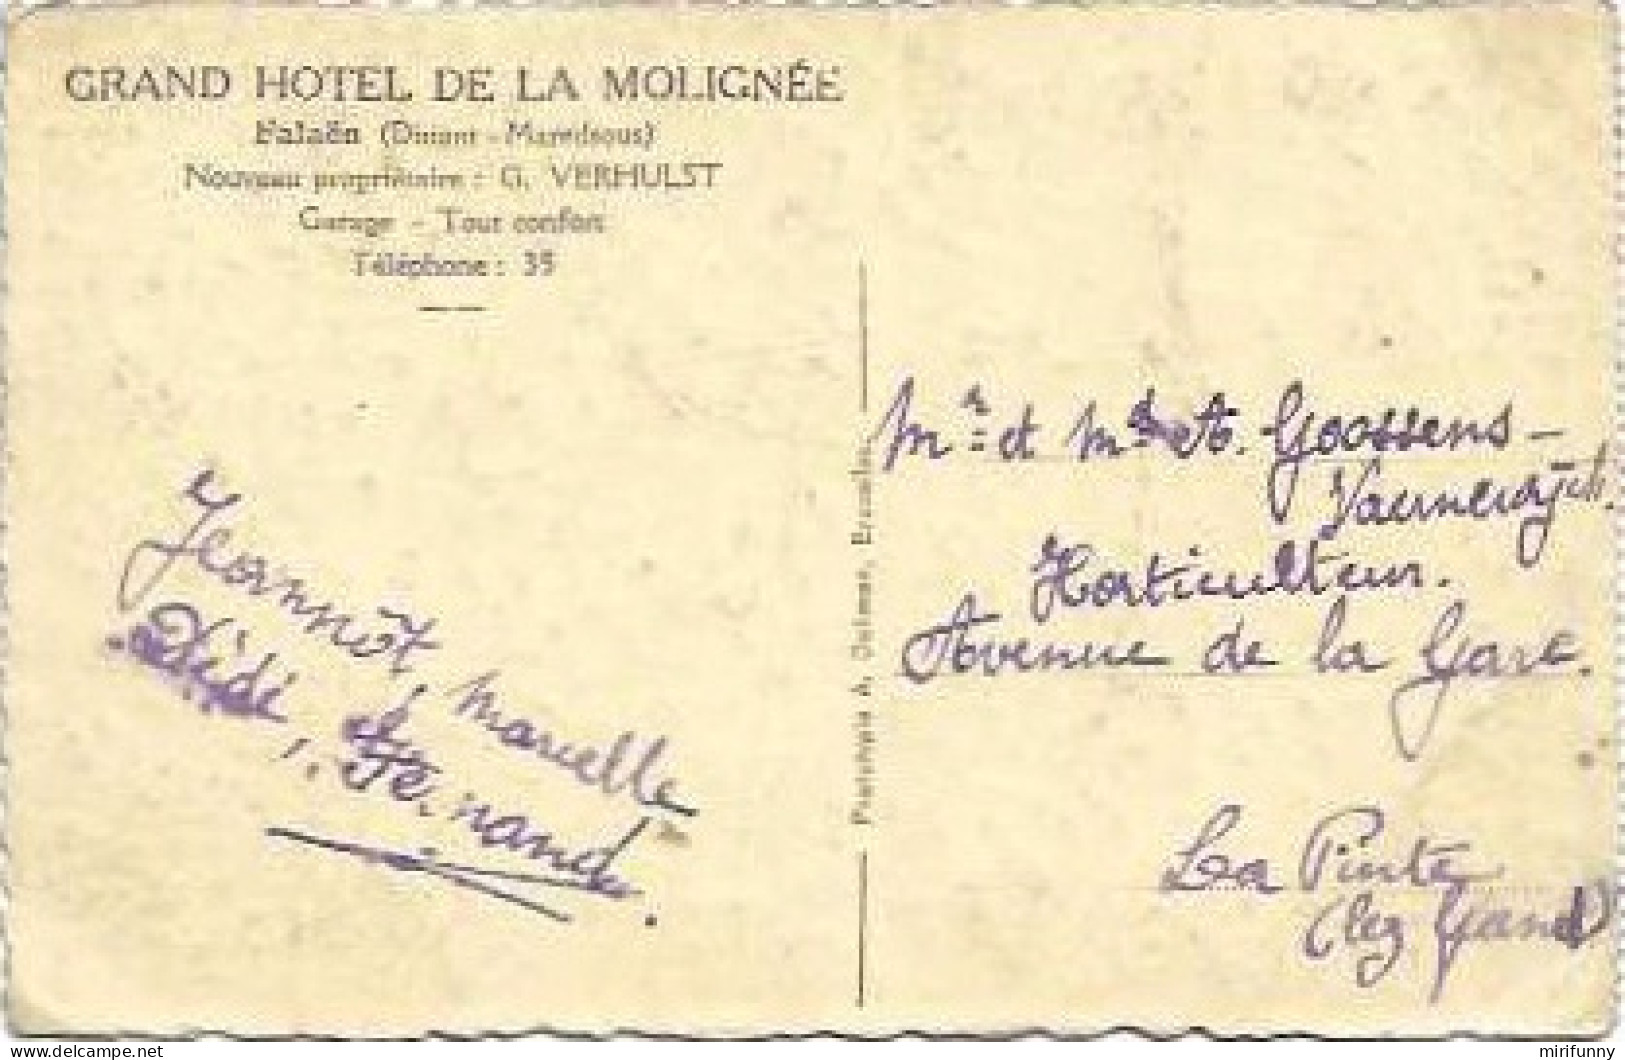 GRAND HOTEL DE LA MOLIGNÉE
Falaën (Dinant - Maredsous)
Nouveau propriétaire : G. VERHULST
Garage - Tout confort
Téléphone : 35
Jeannôt, Marcelle
Didi, & Fernande.
Phototypie A. Dohmen, Bruxelles
Mr et Md A. Goossens -
Horticulteur.
Avenue de la Gare.
La Pinte
(lez Gand)
delcampe.net
mirifunny